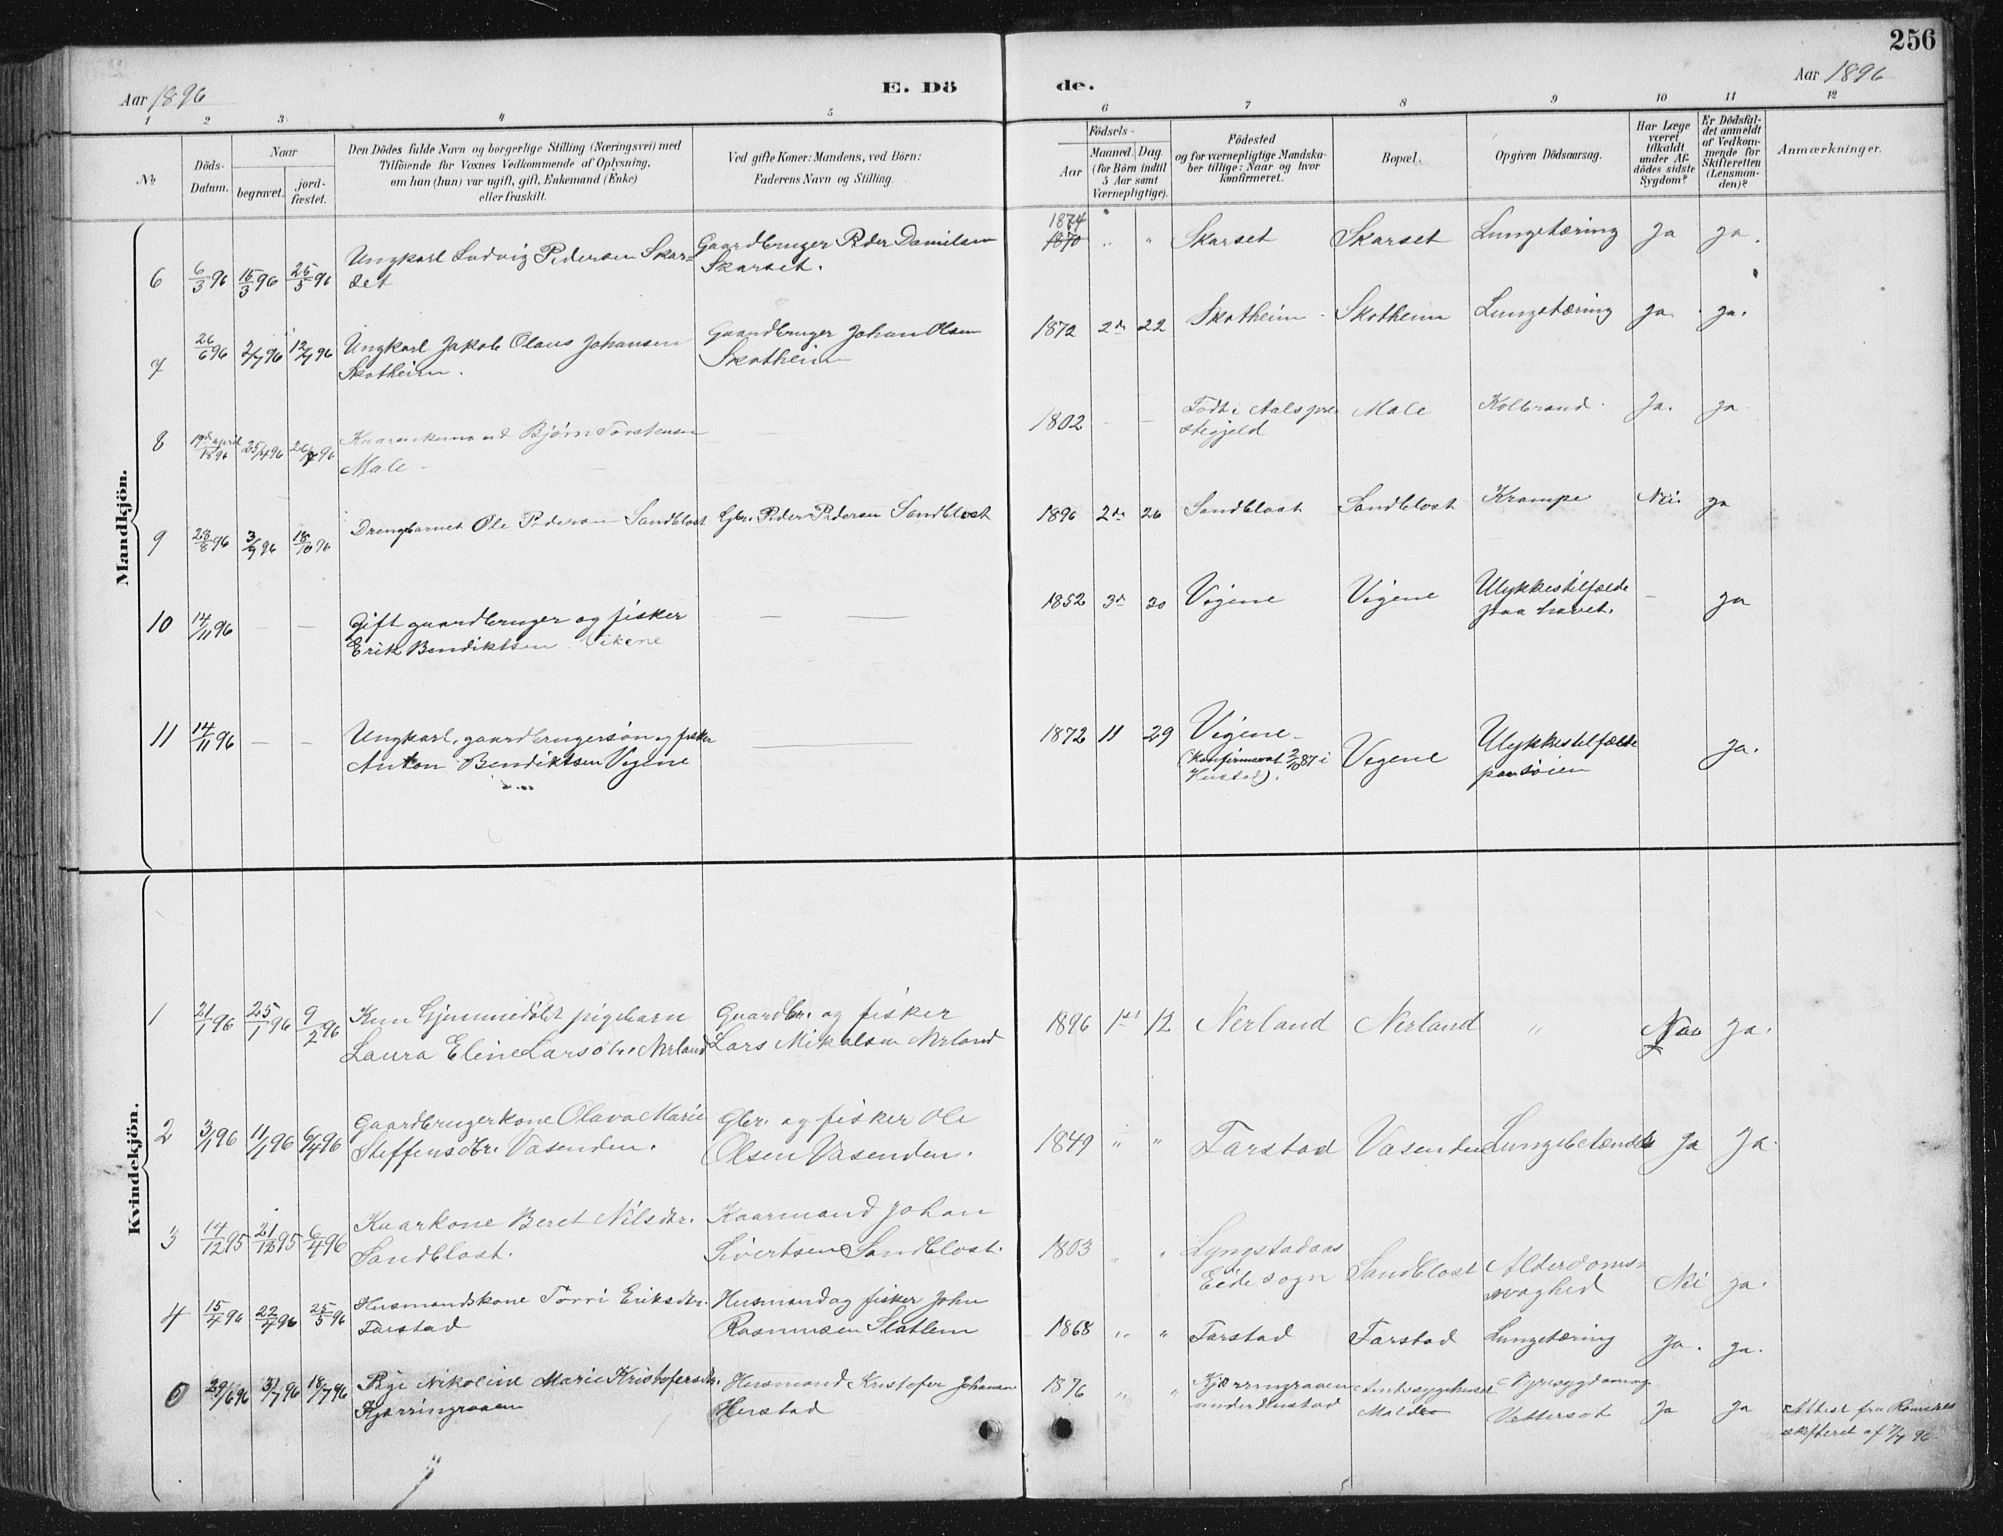 256
Aar 1896
E. Dö
de.
Aar 1896
1 2 3 4 5 6 7 8 9 10 11 12
No
Döds-Datum.
Naar
begravet.
jord-fæstet.
Den Dödes fulde Navn og borgerlige Stilling (Næringsvei) med
Tilföiende for Voxnes Vedkommende af Oplysning,
om han (hun) var ugift, gift, Enkemand (Enke)
eller fraskilt.
Ved gifte Koner: Mandens, ved Börn:
Faderens Navn og Stilling.
Födsels-
Aar
Maaned. Dag
(for Börn indtil
5 Aar samt
Værnepligtige).
Födested
og for værnepligtige Mandska-
ber tillige: Naar og hvor
konfirmeret.
Bopæl.
Opgiven Dödsaarsag.
Har Læge
været
tilkaldt
under Af-
dödes sidste
Sygdom?
Er Dödsfal-
det anmeldt
af Vedkom-
mende for
Skifteretten
(Lensman-
den)?
Anmærkninger.
Mandkjön.
6 6/3 96 15/3 96 25/5 96 Ungkarl Ludvig Pedersen Skar-
set Gaardbruger Peder Danielsen
Skarset. 1874 1870 " " Skarset Skarset Lungetæring Ja ja.
7 26/6 96 2/7 96 12/7 96 Ungkarl Jakob Olaus Johansen
Skotheim. Gaardbruger Johan Olsen
Skotheim 1872 2de 22 Skotheim Skotheim Lungetæring ja. ja.
8 19de april 1896 25/4 96 26/7 96 Bjørn Torstensen
Male 1802 - - Født i Aals præ
stegjeld Male Kolbrand Ja. ja
9 28/8 96 3/9 96 18/10 96 Drengbarnet Ole Pedersen Sandblost Gbr. Peder Pedersen Sandblost 1896 2de 26 Sandblost Sandblost Krampe Nei. ja
10 14/11 96 - - Gift gaardbruger og fisker
Erik Bendiktsen Vikene - - 1852 3de 20 Vigene Vigene Ulykkestilfælde
paa havet. - ja
11 14/11 96 - - Ungkarl, gaardbrugersøn og fisker
Anton Bendiktsen Vigene 1872 11 29 Vigene
(Konfirmerat 2/10 87 i
Hustad). Vigene Ulykkestilfælde
paa søien ja.
Kvindekjön.
1 21/1 96 25/1 96 9/2 96 Kun Gjemmedøbt pigebarn
Laura Eline Larsdtr. Nerland Gaardbr. og fisker
Lars Mikalsen Nerland 1896 1ste 12 Nerland Nerland " ja.
2 3/1 96 11/1 96 6/4 96 Gaardbrugerkone Olava Marie
Steffensdtr. Vasenden. Gbr. og fisker Ole
Olsen Vasenden. 1849 " " Farstad Vasenden Lungebetændelse Ja Ja.
3 14/12 95 21/12 95 6/4 96 Kaarkone Beret Nilsdtr.
Sandblost. Kaarmand Johan
Sivertsen Sandblost. 1803 " " Lyngstadaas
Eide sogn Sandblost Alderdoms-
svaghed Nei ja.
4 15/4 96 22/4 96 25/5 96 Husmandskone Eriksdtr.
Farstad Husmand og fisker John
Rasmusen 1868 " " Farstad Farstad Lungetæring Ja. ja.
5 29/6 96 3/7 96 18/7 96 Pige Nikoline Marie Kristofersdtr.
Kjærringraaen Husmand Kristofer Johansen
Hustad 1876 " " Kjærringraaen
under Hustad Amtssygehuset
Molde Ja ja Attest fra Romsdals
skifteret af 7/7 96.